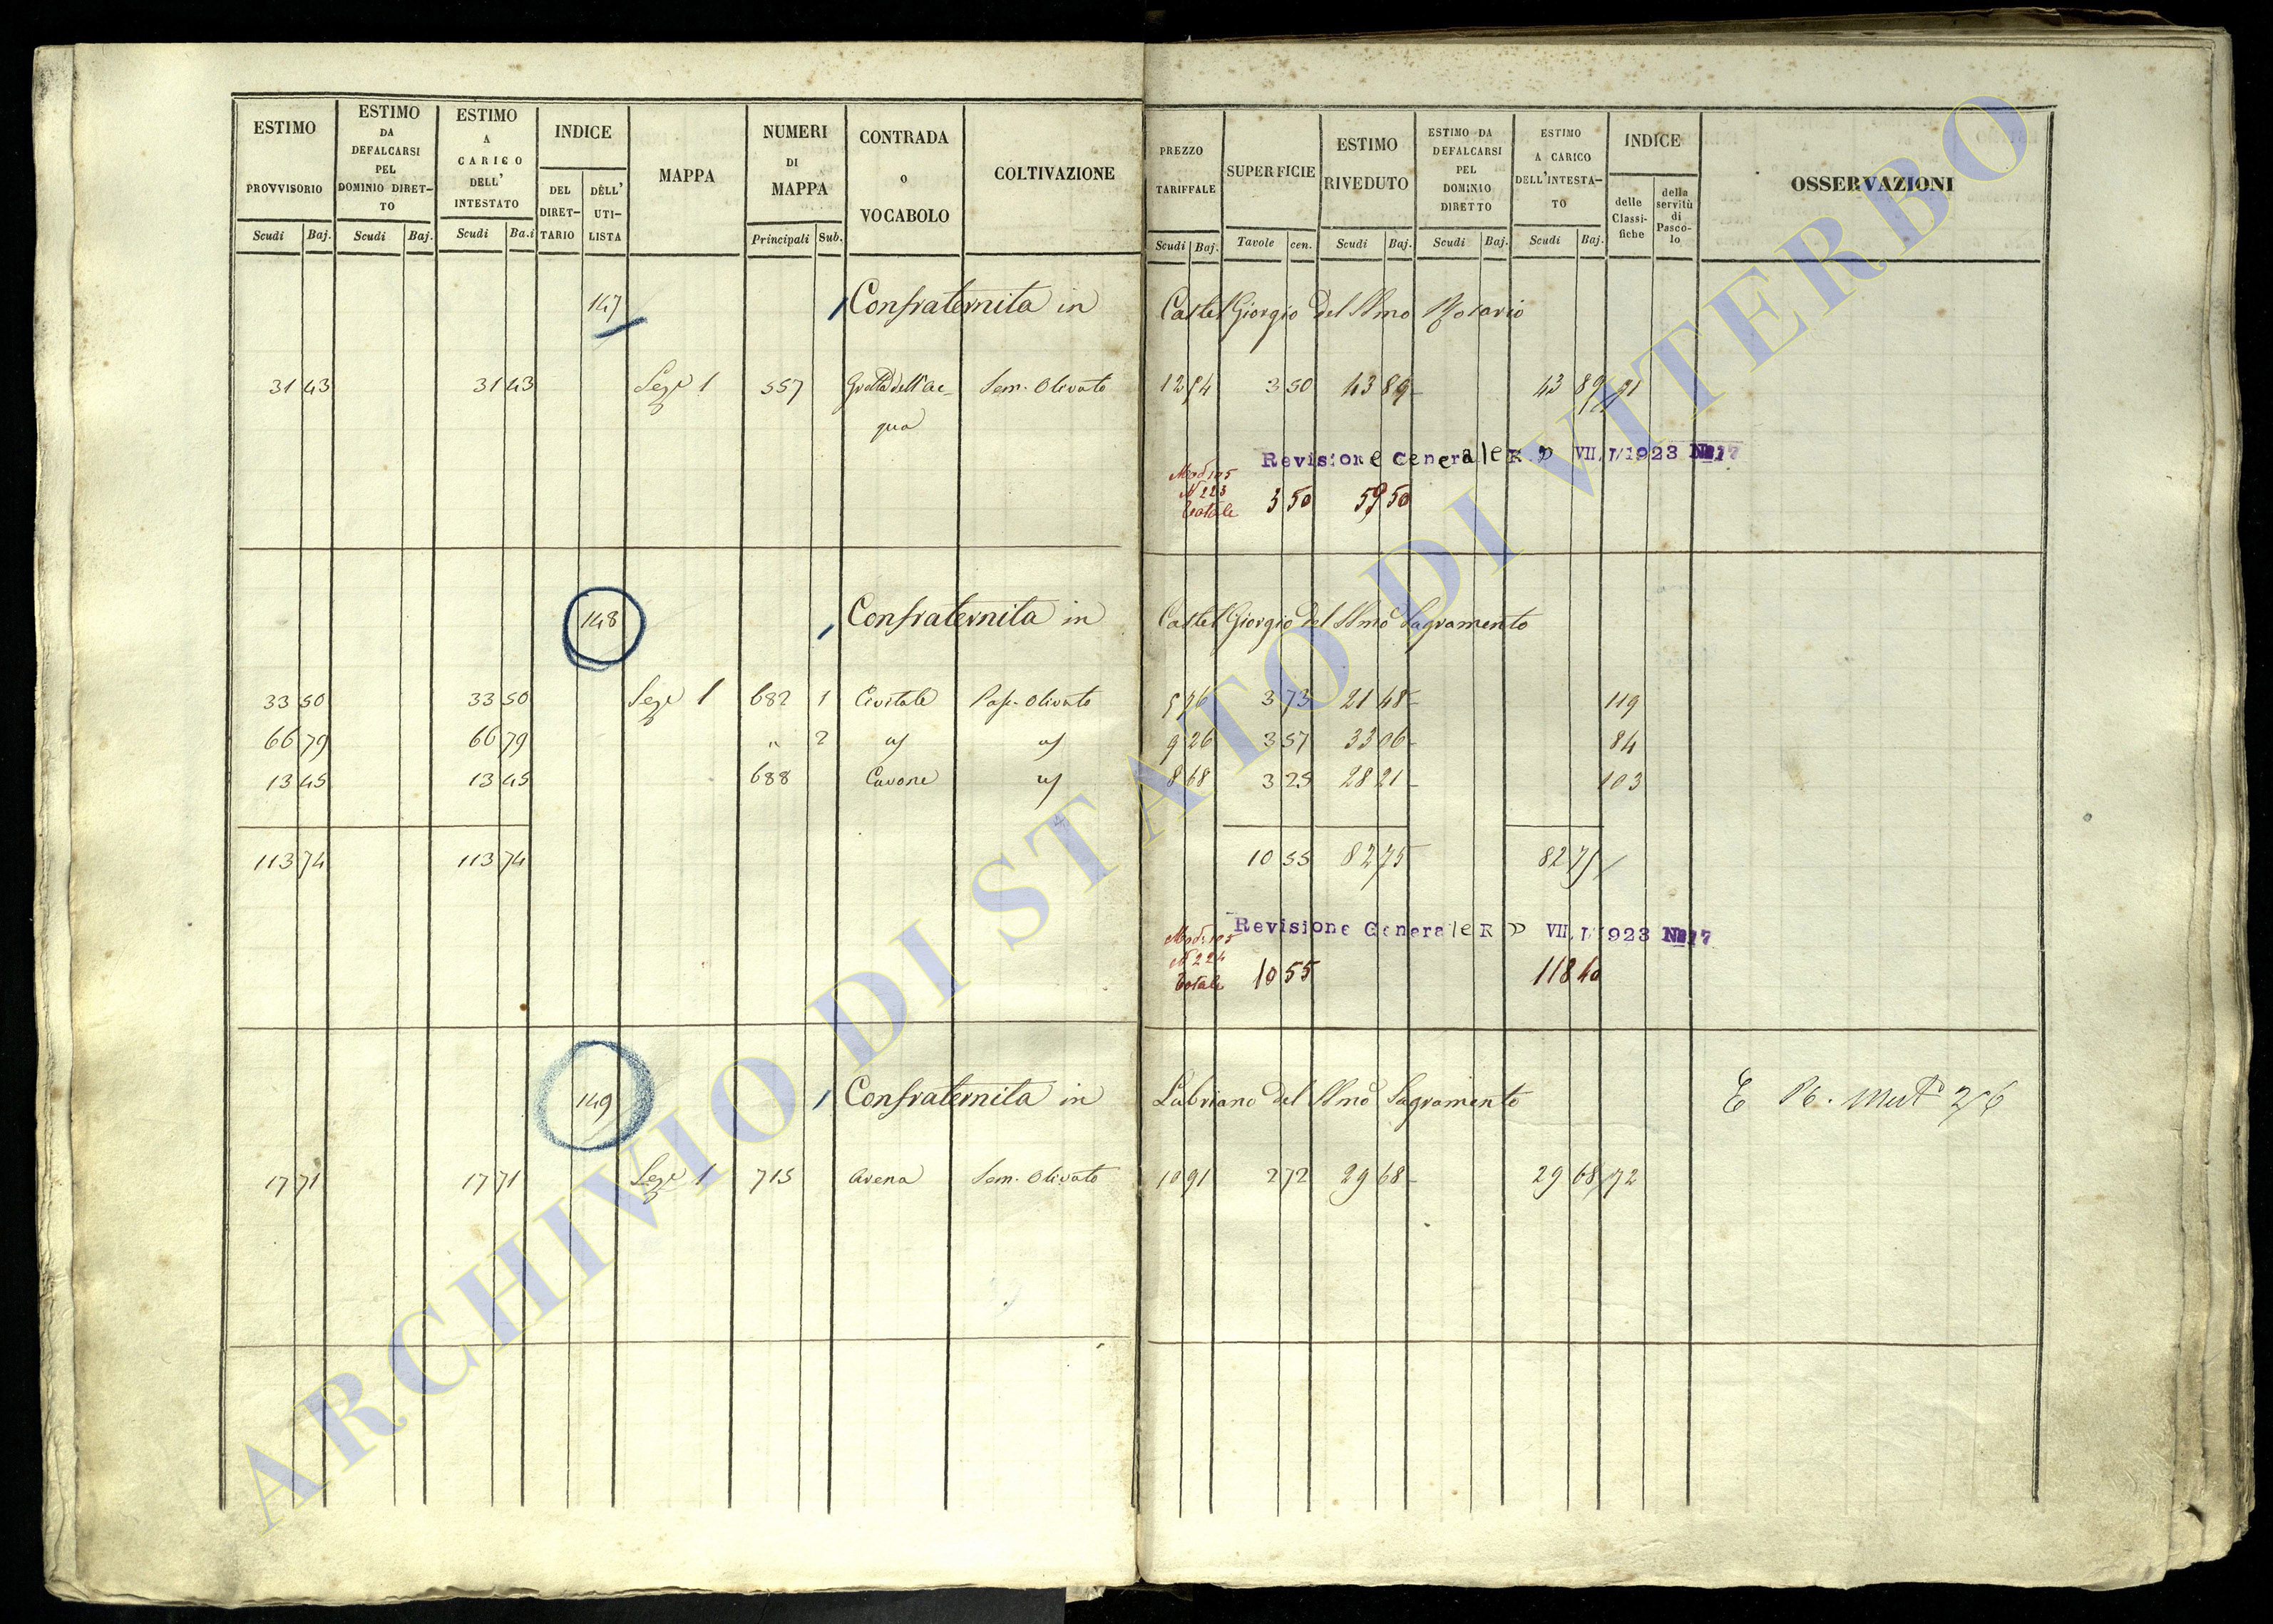 ESTIMO PROVVISORIO Scudi Baj.
ESTIMO DA DEFALCARSI PEL DOMINIO DIRET-TO Scudi Baj.
ESTIMO A CARICO DELL' INTESTATO Scudi Ba.i
INDICE DEL DIRET-TARIO DELL' UTI-LISTA
MAPPA
NUMERI DI MAPPA Principali Sub.
CONTRADA o VOCABOLO
COLTIVAZIONE
PREZZO TARIFFALE Scudi Baj.
SUPERFICIE Tavole cen.
ESTIMO RIVEDUTO Scudi Baj.
ESTIMO DA DEFALCARSI PEL DOMINIO DIRETTO Scudi Baj.
ESTIMO A CARICO DELL'INTESTA-TO Scudi Baj.
INDICE delle Classi-fiche della servitù di Pasco-lo
OSSERVAZIONI
147 Confraternita in Castel Giorgio del SSmo Rosario
31 43 31 43 Sez.e 1 557 Grotta dell'ac- Sem. Olivato 12 54 3 50 43 89 43 89 91
qua
Revisione Generale R D VII/I/1923 No 17
Mod 105
N 223
Totale 3 50 59 50
148 Confraternita in Castel Giorgio del SSmo Sagramento
33 50 33 50 Sez.e 1 682 1 Civitale Pas. Olivato 5 76 3 73 21 48 119
66 79 66 79 " 2 9 26 3 57 33 06 84
13 45 13 45 688 Cavone 8 68 3 25 28 21 103
113 74 113 74 10 55 82 75 82 75
Revisione Generale R D VII/I/1923 No 17
Mod. 105
N 224
Totale 10 55 118 40
149 Confraternita in Lubriano del SSmo Sagramento
17 71 17 71 Sez.e 1 715 Arena Sem. Olivato 10 91 2 72 29 68 29 68 72
ARCHIVIO DI STATO DI VITERBO